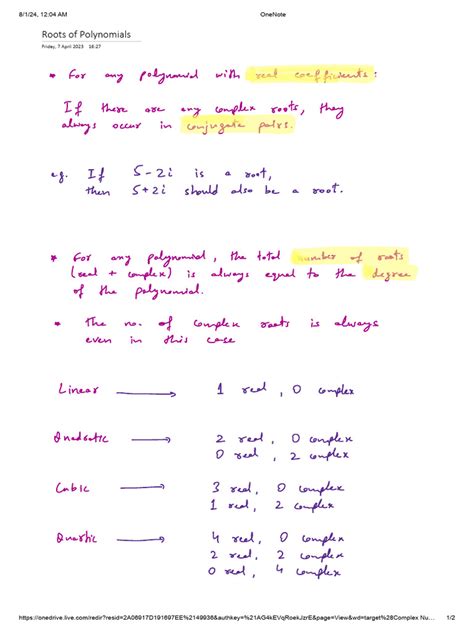 8/1/24, 12:04 AM OneNote
Roots of Polynomials
Friday, 7 April 2023 16:27
* For any polynomial with real coefficients :
If there are any complex roots, they
always occur in conjugate pairs.
e.g. If 5-2i is a root,
then 5+2i should also be a root.
* For any polynomial, the total number of roots
(real + complex) is always equal to the degree
of the polynomial.
* The no. of complex roots is always
even in this case
Linear → 1 real, 0 complex
Quadratic → 2 real, 0 complex
0 real, 2 complex
Cubic → 3 real, 0 complex
1 real, 2 complex
Quartic → 4 real, 0 complex
2 real, 2 complex
0 real, 4 complex
https://onedrive.live.com/redir?resid=2A06917D191697EE%2149938&authkey=%21AG4kEVqRoekJzrE&page=View&wd=target%28Complex Nu… 1/2